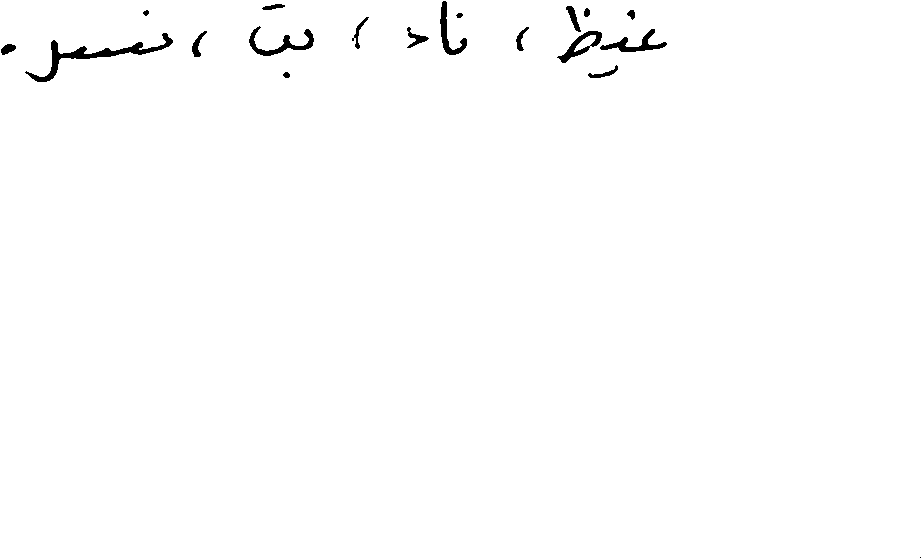 غيظ ، ناد ، بت ، نسر .